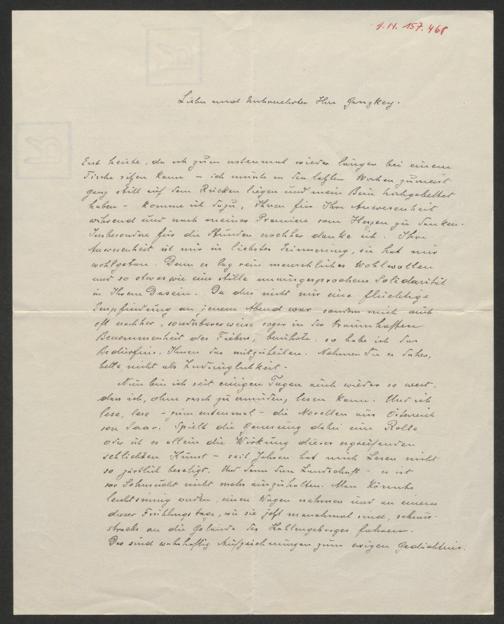 I.N. 157.468
Lieber und
Erst heute, da ich zum erstenmal wieder länger bei einem
Tische sitzen kann – ich musste in den letzten Wochen zumeist
ganz still auf dem Rücken liegen und mein Bein hochgebettet
haben – komme ich dazu, Ihnen für Ihre Anwesenheit
während und nach meiner Premiere vom Herzen zu danken.
Insbesondere für die Stunden nachher danke ich. Ihre
Anwesenheit ist mir in liebster Erinnerung, sie hat mir
wohlgetan. Denn es lag rein menschliches Wohlwollen
und so etwas wie eine stille unausgesprochene Solidarität
in Ihrem Dasein. Da dies nicht nur eine flüchtige
Empfindung an jenem Abend war sondern mich auch
oft nachher, sonderbarerweise sogar in der traumhaften
Benommenheit des Fiebers, berührte, so habe ich das
Bedürfnis, Ihnen das mitzuteilen. Nehmen Sie es daher,
bitte, nicht als Zudringlichkeit.
Nun bin ich seit einigen Tagen auch wieder so weit,
dass ich, ohne rasch zu ermüden, lesen kann. Und ich
lese, lese – zum erstenmal – die Novellen aus Österreich
von Saar. Spielt die Genesung dabei eine Rolle
oder ist es allein die Wirkung dieser ergreifenden
schlichten Kunst – seit Jahren hat mich Lesen nicht
so zärtlich beseligt. Und dann die Landschaft – es ist
vor Sehnsucht nicht mehr auszuhalten. Man könnte
leichtsinnig werden, einen Wagen nehmen und an einem
dieser Frühlingstage, wie sie jetzt manchmal sind, schnur-
stracks an die Gelände des Kahlengebirges fahren.
Das sind wahrhaftig Aufzeichnungen zum ewigen Gedächtnis.